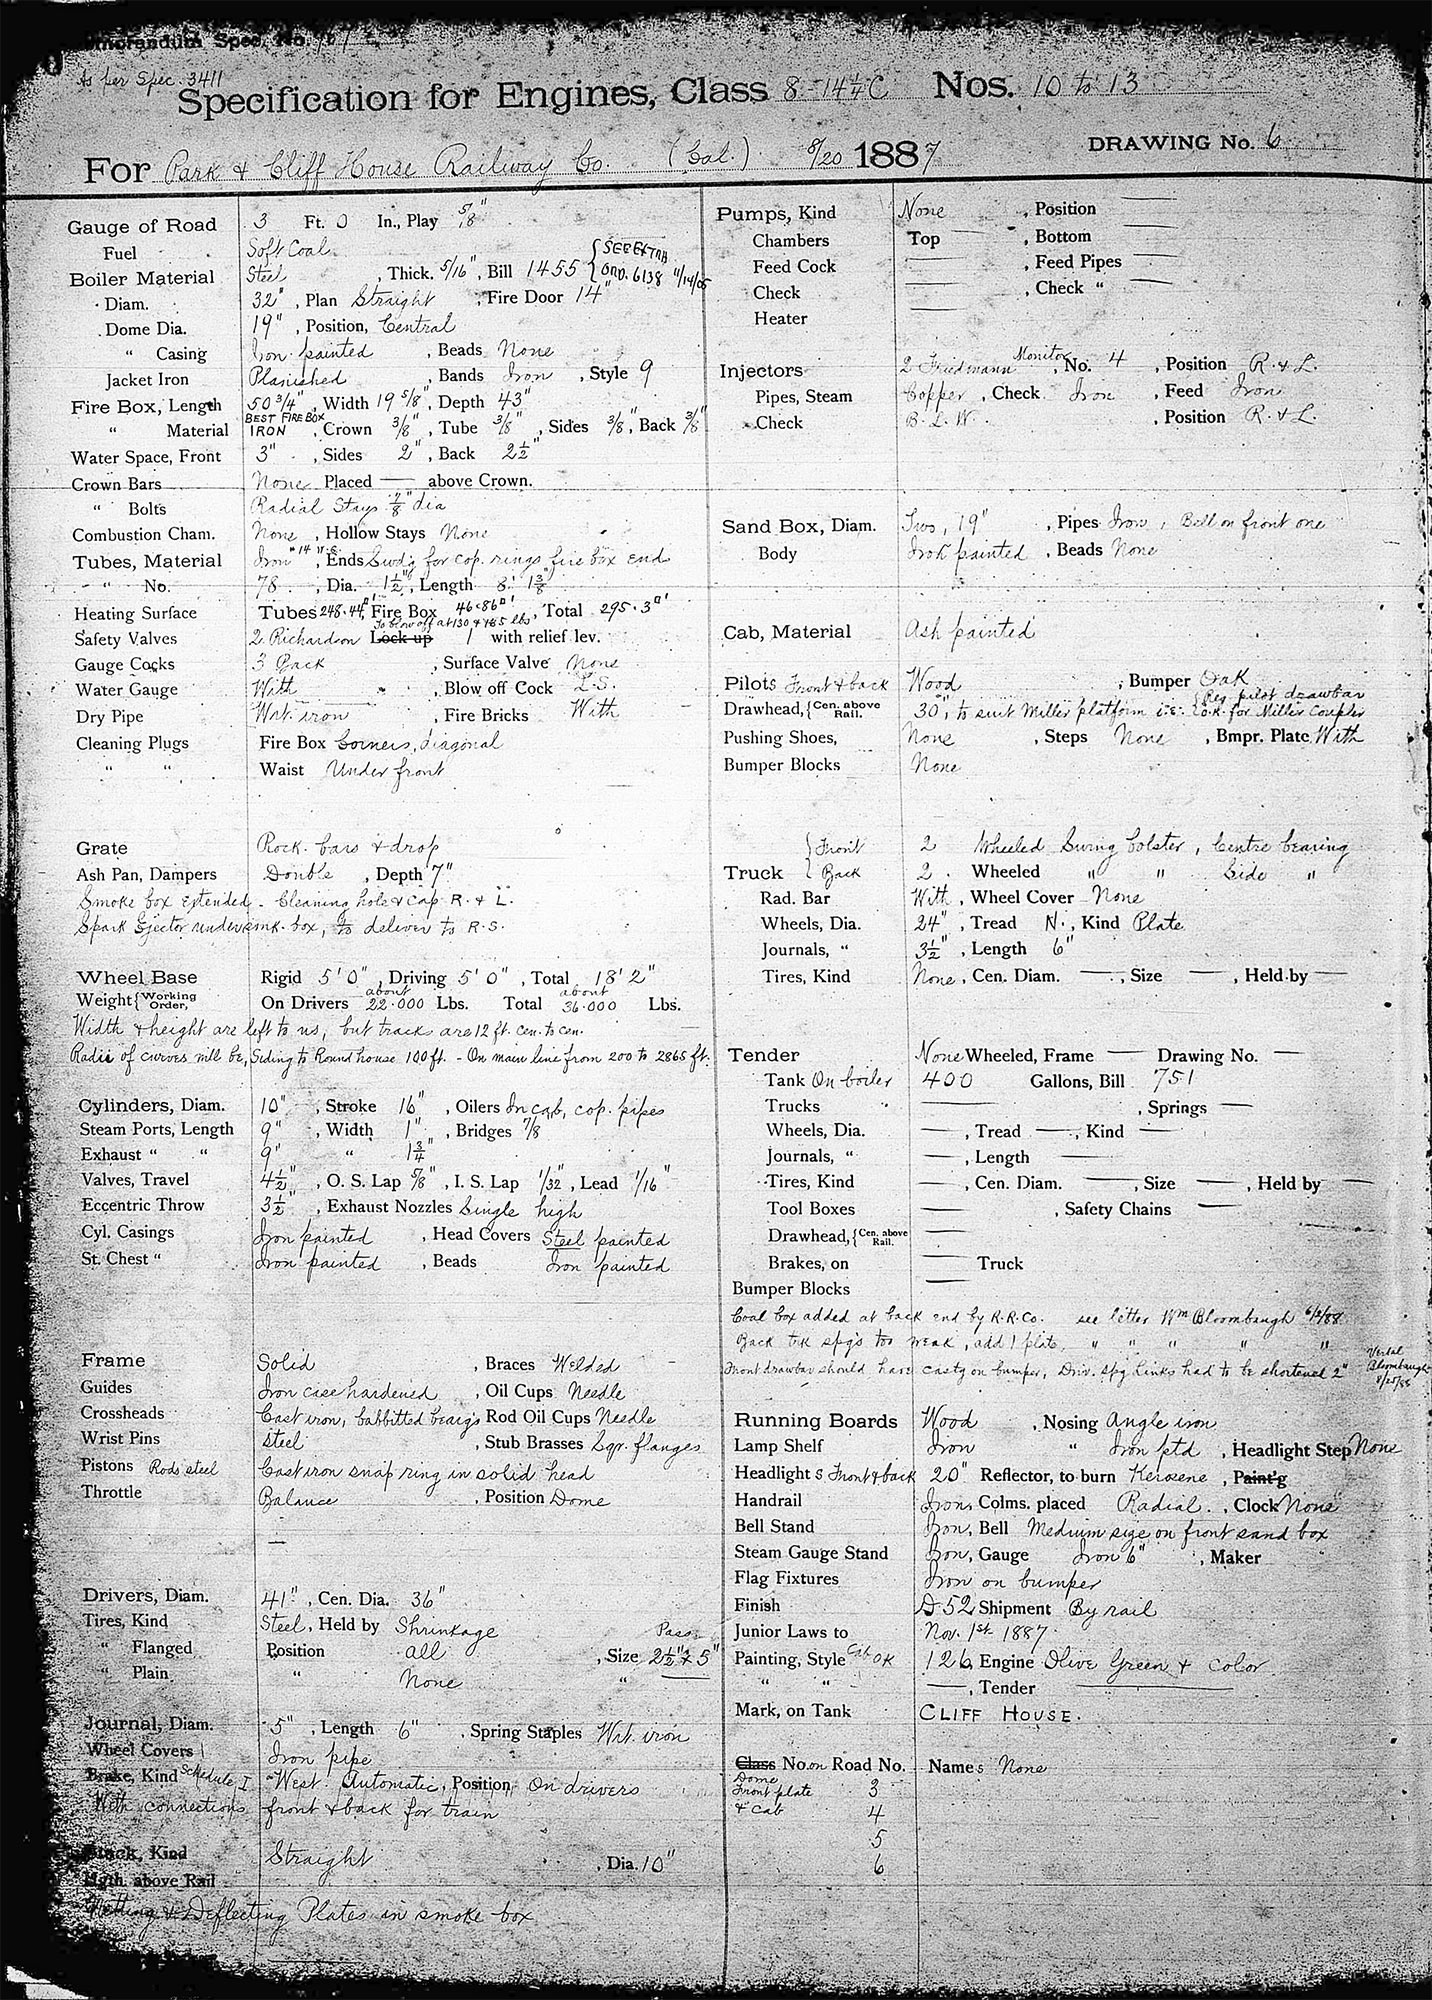 Memorandum Spec. No.
As per Spec. 3411
Specification for Engines, Class 8-14 1/4 C Nos. 10 to 13
DRAWING No. 6
For Park & Cliff House Railway Co. (Cal.) 8/20 1887
Gauge of Road 3 Ft. 0 In., Play 5/8"
Fuel Soft Coal
Boiler Material Steel, Thick. 5/16", Bill 1455 { SEE EXTRA ORD. 6138 11/14/05
Diam. 32", Plan Straight, Fire Door 14"
Dome Dia. 19", Position, Central
" Casing Iron painted, Beads None
Jacket Iron Planished, Bands Iron, Style 9
Fire Box, Length 50 3/4", Width 19 5/8", Depth 43"
" Material BEST FIRE BOX IRON, Crown 3/8", Tube 3/8", Sides 3/8", Back 3/8"
Water Space, Front 3", Sides 2", Back 2 1/2"
Crown Bars None Placed — above Crown.
" Bolts Radial Stays 7/8" dia
Combustion Cham. None, Hollow Stays None
Tubes, Material Iron #14, Ends Swdg for cop. rings fire box end
" No. 78, Dia. 1 1/2", Length 8' 1 3/8"
Heating Surface Tubes 248.44□', Fire Box 46.86□', Total 295.3□'
Safety Valves 2 Richardson Lock up To blow off at 130 & 135 lbs 1 with relief lev.
Gauge Cocks 3 Back, Surface Valve None
Water Gauge With, Blow off Cock L.S.
Dry Pipe Wrt. iron, Fire Bricks With
Cleaning Plugs Fire Box Corners, diagonal
" " Waist Under front
Grate Rock. bars & drop
Ash Pan, Dampers Double, Depth 7"
Smoke box Extended. Cleaning hole & cap R. & L.
Spark Ejector under smk. box, to deliver to R.S.
Wheel Base Rigid 5' 0", Driving 5' 0", Total 18' 2"
Weight { Working Order, On Drivers about 22.000 Lbs. Total about 36.000 Lbs.
Width & height are left to us, but track are 12 ft. cen. to cen.
Radii of curves will be, Siding to Round house 100 ft. - On main line from 200 to 2865 ft.
Cylinders, Diam. 10", Stroke 16", Oilers In cab, cop. pipes
Steam Ports, Length 9", Width 1", Bridges 7/8"
Exhaust " " 9" " 1 3/4"
Valves, Travel 4 1/2", O. S. Lap 5/8", I. S. Lap 1/32", Lead 1/16"
Eccentric Throw 3 1/2", Exhaust Nozzles Single high
Cyl. Casings Iron painted, Head Covers Steel painted
St. Chest " Iron painted, Beads Iron painted
Frame Solid, Braces Welded
Guides Iron case hardened, Oil Cups Needle
Crossheads Cast iron, babbitted bearg's Rod Oil Cups Needle
Wrist Pins Steel, Stub Brasses Sqr. flanges
Pistons Rods steel Cast iron snap ring in solid head
Throttle Balance, Position Dome
Drivers, Diam. 41", Cen. Dia. 36"
Tires, Kind Steel, Held by Shrinkage
" Flanged Position all, Size Pass. 2 1/2" x 5"
" Plain " None " —
Journal, Diam. 5", Length 6", Spring Staples Wrt. iron
Wheel Covers Iron pipe
Brake, Kind Schedule I West. Automatic, Position On drivers
With connections front & back for train
Stack, Kind Straight, Dia. 10"
Hgth. above Rail
Netting & Deflecting Plates in smoke box
Pumps, Kind None, Position —
Chambers Top —, Bottom —
Feed Cock —, Feed Pipes —
Check —, Check " —
Heater —
Injectors 2 Friedmann Monitor, No. 4, Position R. & L.
Pipes, Steam Copper, Check Iron, Feed Iron
Check B. L. W., Position R. & L.
Sand Box, Diam. Two, 19", Pipes Iron, Bell on front one
Body Iron painted, Beads None
Cab, Material Ash painted
Pilots Front & back Wood, Bumper Oak
Drawhead, { Cen. above Rail. 30", to suit Miller platform i.e. { Reg. pilot drawbar O.K. for Miller Coupler
Pushing Shoes, None, Steps None, Bmpr. Plate With
Bumper Blocks None
Truck { Front 2 Wheeled Swing bolster, Centre bearing
Back 2 Wheeled " " Side "
Rad. Bar With, Wheel Cover None
Wheels, Dia. 24", Tread N., Kind Plate
Journals, " 3 1/2", Length 6"
Tires, Kind None, Cen. Diam. —, Size —, Held by —
Tender None Wheeled, Frame — Drawing No. —
Tank On boiler 400 Gallons, Bill 751
Trucks —, Springs —
Wheels, Dia. —, Tread —, Kind —
Journals, " —, Length —
Tires, Kind —, Cen. Diam. —, Size —, Held by —
Tool Boxes —, Safety Chains —
Drawhead, { Cen. above Rail. —
Brakes, on — Truck
Bumper Blocks —
Coal box added at back end by R.R. Co. see letter Wm Bloombaugh 6/9/88
Back trk spg's too weak, add 1 plate, " " " " "
Front drawbar should have castg on bumper, Driv. spg links had to be shortened 2" Verbal Bloombaugh 8/20/88
Running Boards Wood, Nosing Angle iron
Lamp Shelf Iron " Iron ptd, Headlight Step None
Headlights Front & back 20" Reflector, to burn Kerosene, Paint'g
Handrail Iron, Colms. placed Radial., Clock None
Bell Stand Iron, Bell Medium size on front sand box
Steam Gauge Stand Iron, Gauge Iron 6", Maker
Flag Fixtures Iron on bumper
Finish D 52 Shipment By rail
Junior Laws to Nov. 1st 1887.
Painting, Style Cab OK 126, Engine Olive Green & Color
" " —, Tender —
Mark, on Tank CLIFF HOUSE.
Class No. on Road No. Names None
Dome 3
Front plate 4
& Cab 5
6